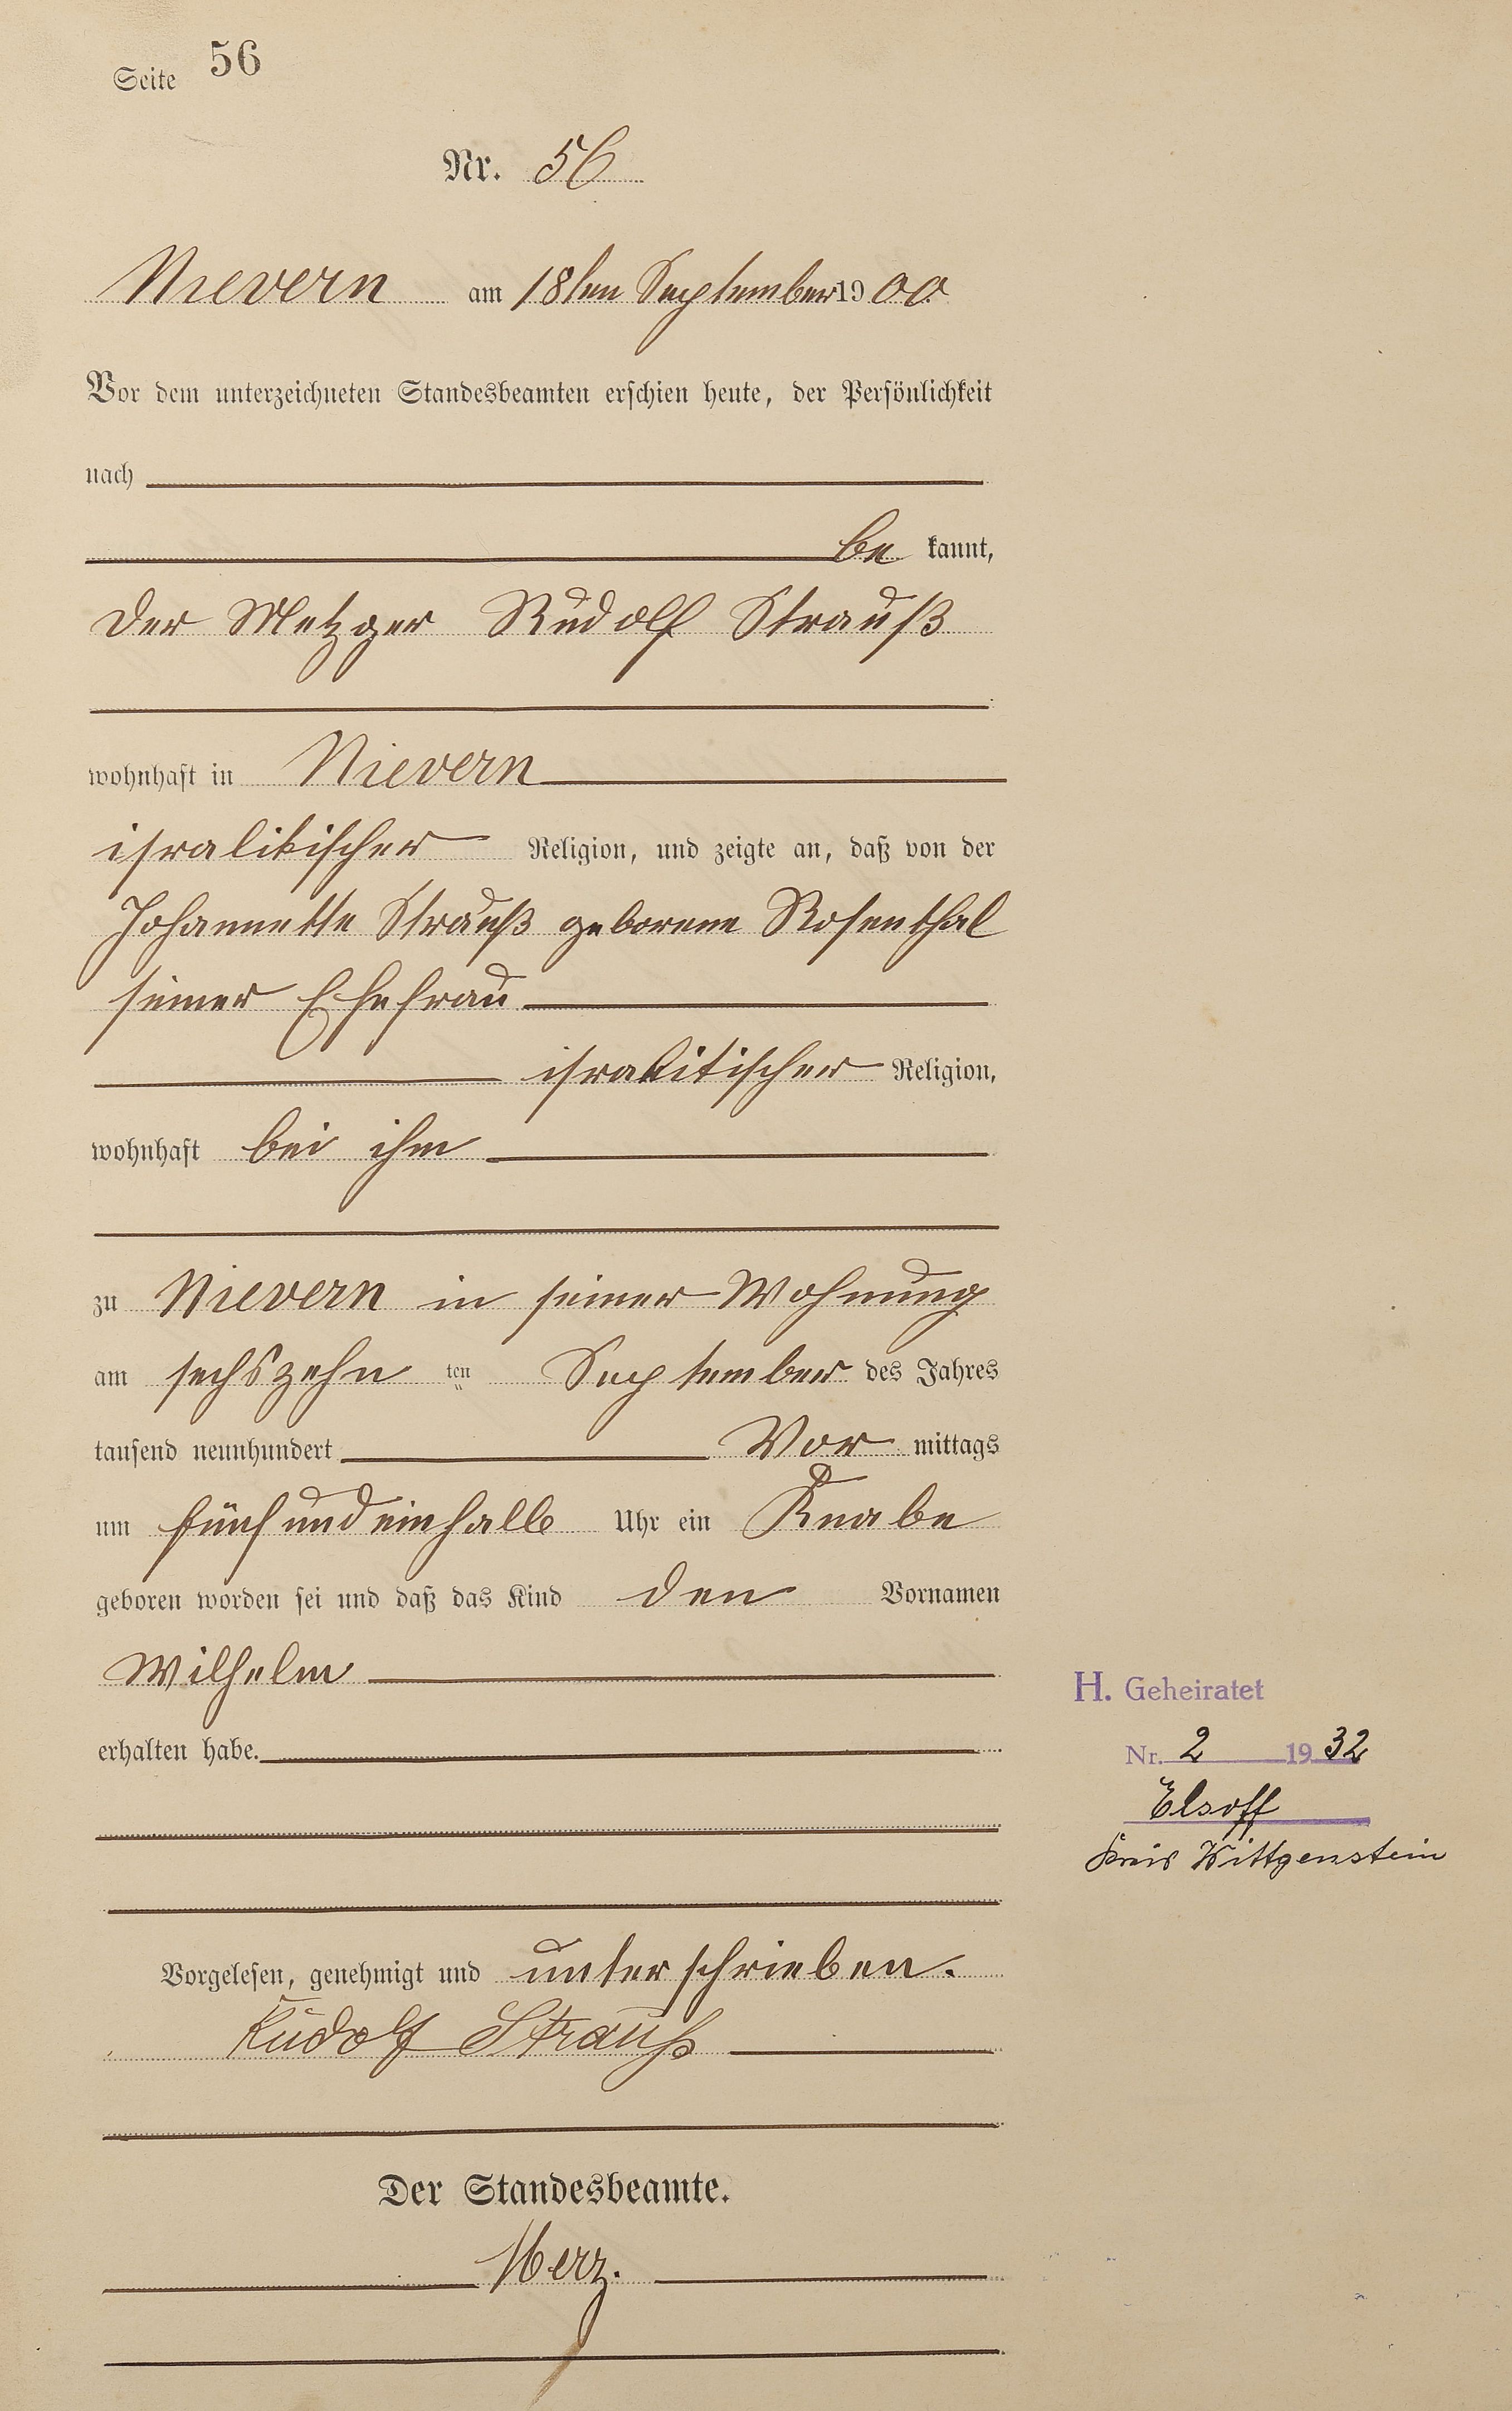 Seite 56
Nr. 56
Nievern am 18ten September 1900
Vor dem unterzeichneten Standesbeamten erschien heute, der Persönlichkeit
nach
be kannt,
der Metzger Rudolf Strauß
wohnhaft in Nievern
isralitischer Religion, und zeigte an, daß von der
Johannette Strauß geborene Rosenthal
seiner Ehefrau
isralitischer Religion,
wohnhaft bei ihm
zu Nievern in seiner Wohnung
am sechszehn ten September des Jahres
tausend neunhundert Vor mittags
um fünf und ein halb Uhr ein Knabe
geboren worden sei und daß das Kind den Vornamen
Wilhelm
erhalten habe.
H. Geheiratet
Nr. 2 1932
Elsoff
Kreis Wittgenstein
Vorgelesen, genehmigt und unterschrieben.
Rudolf Strauß
Der Standesbeamte.
Herz.